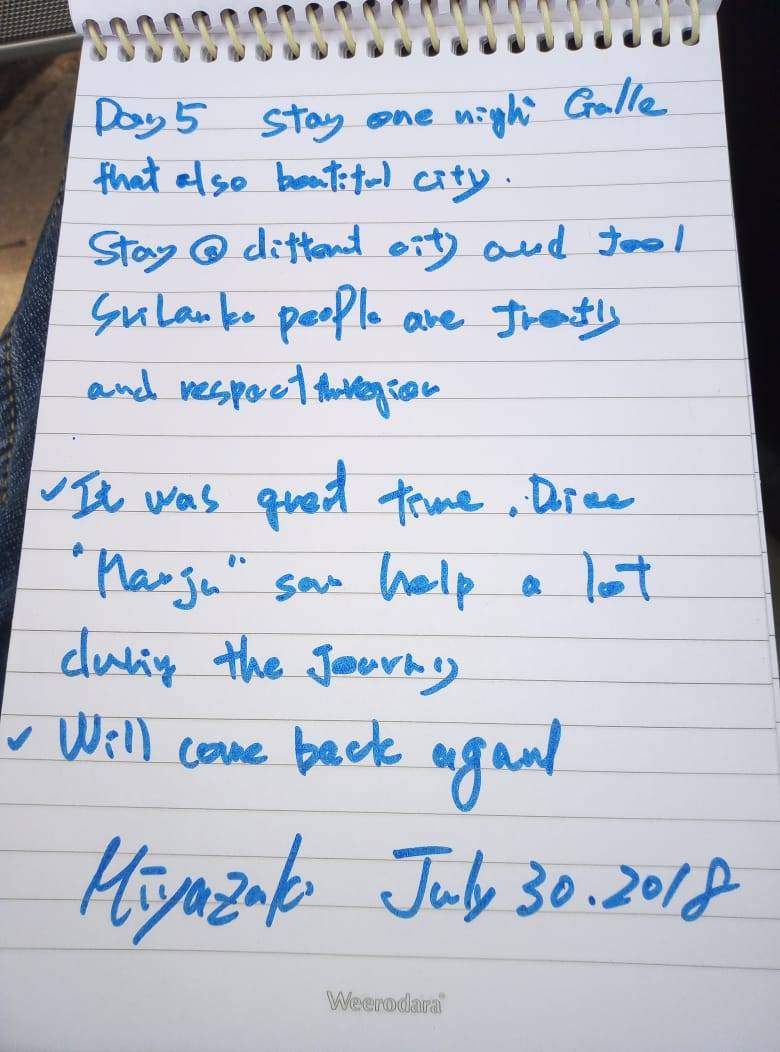 Day 5 Stay one night Galle
that also beautiful city.
Stay @ different city and feel
SriLanka people are friendly
and respect religion
✓ It was great time. Drive
"Manju" san help a lot
during the journey
✓ Will come back again!
Miyazaki July 30.2018
Weerodara